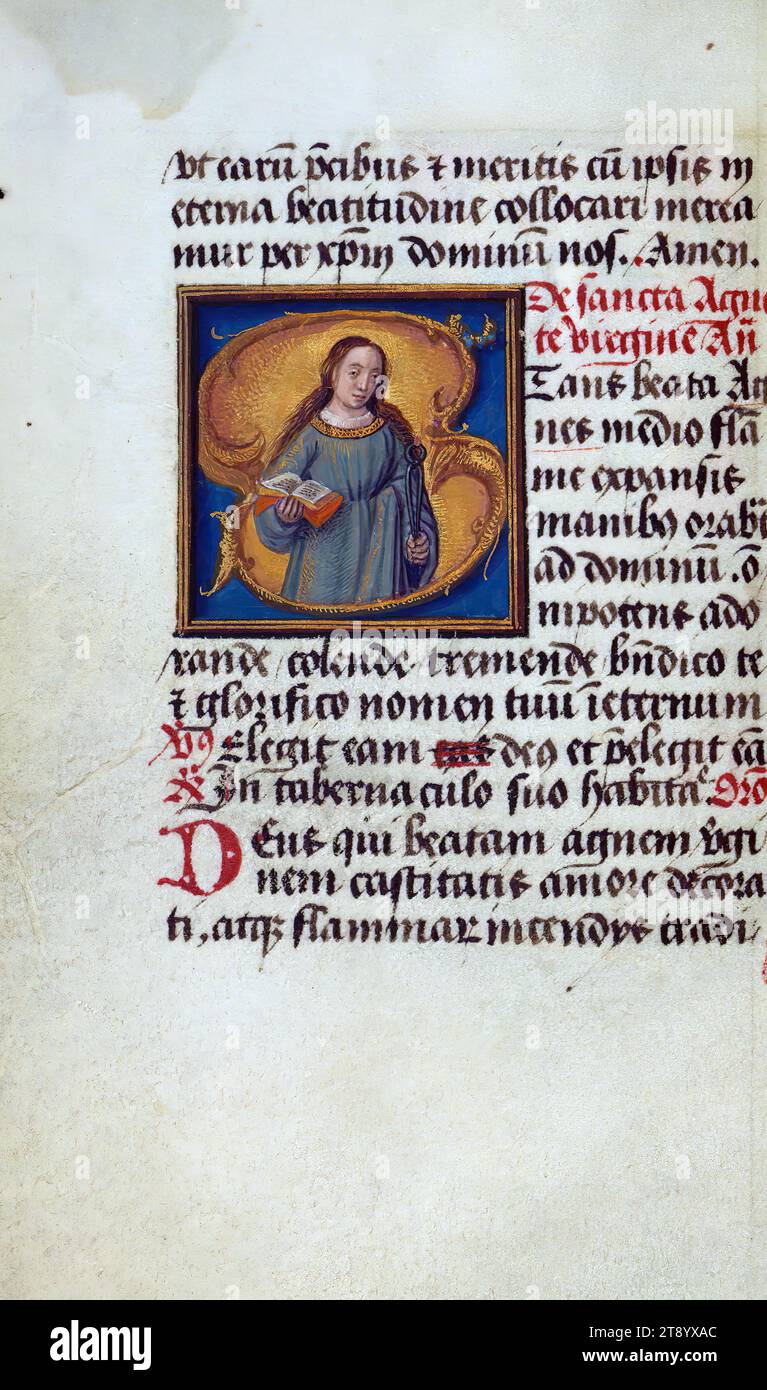 vt earū p̄cibus ⁊ meritis cū ipsis in
eterna beatitudine collocari merea
mur per xp̄m dominū nos. Amen.
De sancta Agne
te virgine Añ
Stans beata Ag
nes medio flā
me expansis
manibꝰ orabat
ad dominū. ō
nipotens ado
rande colende tremende bn̄dico te
⁊ glorifico nomen tuū īeternum
Elegit eam deꝰ et p̄elegit eā
In tabernaculo suo habita
Deus qui beatam agnem v̄gi
nem castitatis amore decora
ti, atqꝫ flammar incendys tradi
alamy
Image ID: 2T8YXAC
www.alamy.com